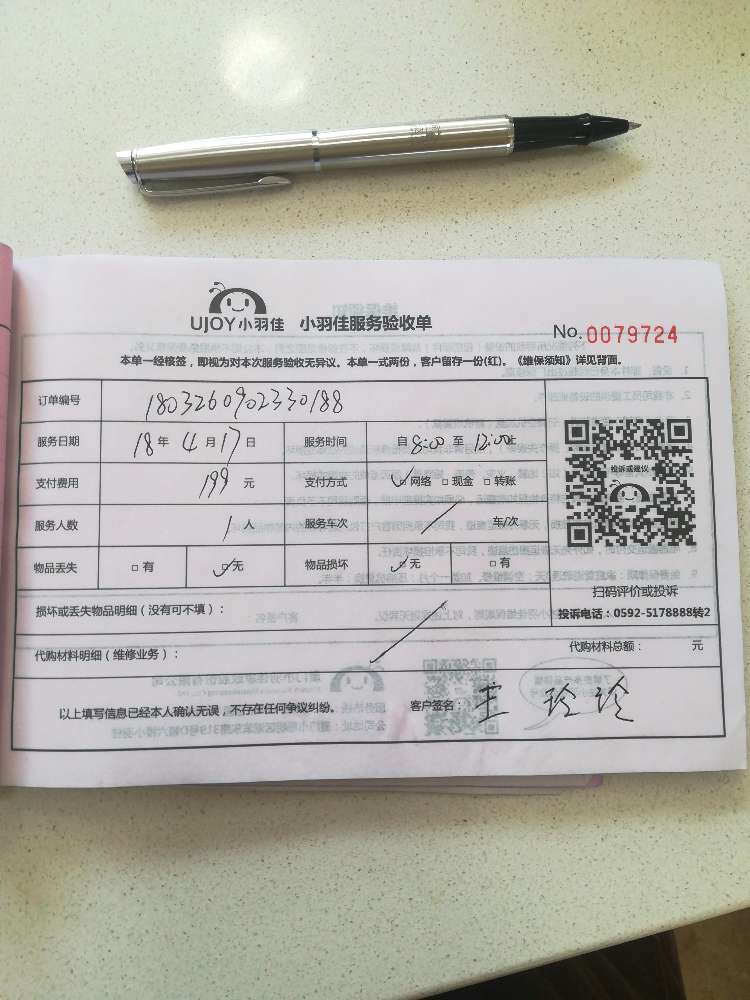 UJOY小羽佳 小羽佳服务验收单 No.0079724
本单一经核签，即视为对本次服务验收无异议。本单一式两份，客户留存一份(红)。《维保须知》详见背面。
订单编号 1803260902330188
服务日期 18 年 4 月 17 日 服务时间 自 8:00 至 12:00止
支付费用 199 元 支付方式 ☑网络 □现金 □转账
服务人数 1 人 服务车次 / 车/次
物品丢失 □有 ☑无 物品损坏 ☑无 □有
投诉或建议
扫码评价或投诉
投诉电话：0592-5178888转2
损坏或丢失物品明细（没有可不填）：
代购材料明细（维修业务）： 代购材料总额： 元
以上填写信息已经本人确认无误，不存在任何争议纠纷。 客户签名： 王玲珍